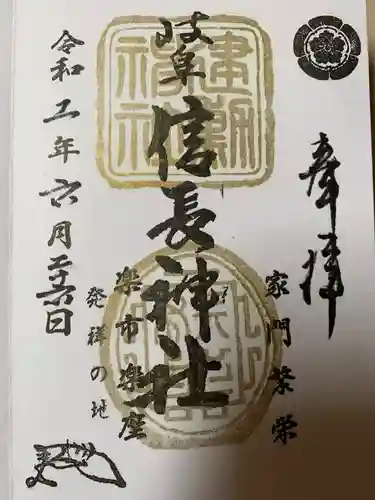 奉拝
家門繁栄
岐阜信長神社
楽市楽座
発祥の地
令和二年六月二十六日
建勲神社